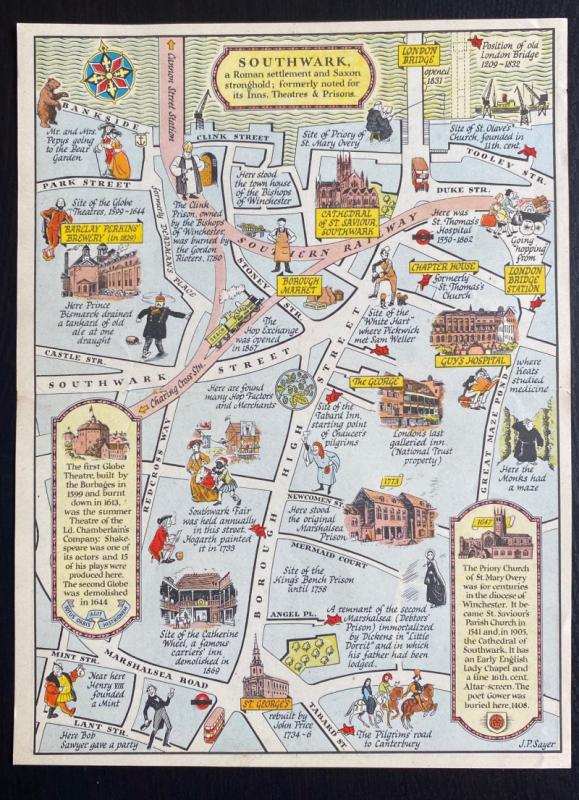 SOUTHWARK,
a Roman settlement and Saxon
stronghold; formerly noted for
its Inns, Theatres & Prisons.
Cannon Street Station
LONDON
BRIDGE
opened
1831
Position of old
London Bridge
1209-1832
BANKSIDE
Mr. and Mrs.
Pepys going
to the Bear
Garden
CLINK STREET
Site of Priory of
St. Mary Overy
Site of St. Olave's
Church, founded in
11th. cent.
TOOLEY STR.
PARK STREET
DUKE STR.
Here stood
the town house
of the Bishops
of Winchester
Site of the Globe
Theatres, 1599-1644
formerly DEADMAN'S PLACE
The Clink
Prison, owned
by the Bishops
of Winchester,
was burned by
the Gordon
Rioters, 1780
CATHEDRAL
OF ST. SAVIOUR,
SOUTHWARK
Here was
St. Thomas's
Hospital
1550-1862
Going
hopping
from
LONDON
BRIDGE
STATION
BARCLAY PERKINS'
BREWERY (in 1829)
SOUTHERN RAILWAY
STONEY STR.
BOROUGH
MARKET
CHAPTER HOUSE
formerly
St. Thomas's
Church
Here Prince
Bismarck drained
a tankard of old
ale at one
draught
The
Hop Exchange
was opened
in 1867
Site of the
"White Hart"
where Pickwick
met Sam Weller
GUY'S HOSPITAL
where
Keats
studied
medicine
CASTLE STR.
SOUTHWARK STREET
Charing Cross Stn.
Here are found
many Hop Factors
and Merchants
The GEORGE
London's last
galleried inn.
(National Trust
property)
Site of the
Tabard Inn,
starting point
of Chaucer's
pilgrims
GREAT MAZE POND
Here the
Monks had
a maze
REDCROSS WAY
BOROUGH HIGH STREET
The first Globe
Theatre, built
by the
Burbages in
1599 and burnt
down in 1613,
was the summer
Theatre of the
Ld. Chamberlain's
Company: Shake-
speare was one
of its actors and 15
of his plays were
produced here.
The second Globe
was demolished
in 1644
TOTUS ORBIS AGIT HISTRIONEM
Southwark Fair
was held annually
in this street.
Hogarth painted
it in 1733
NEWCOMEN ST.
1773
Here stood
the original
Marshalsea
Prison
MERMAID COURT
Site of the
King's Bench Prison
until 1758
Site of the Catherine
Wheel, a famous
carriers' inn
demolished in
1869
ANGEL PL.
A remnant of the second
Marshalsea (Debtors'
Prison) immortalized
by Dickens in "Little
Dorrit" and in which
his father had been
lodged.
1647
The Priory Church
of St. Mary Overy
was for centuries
in the diocese of
Winchester. It be-
came St. Saviour's
Parish Church in
1541 and, in 1905,
the Cathedral of
Southwark. It has
an Early English
Lady Chapel and
a fine 16th. cent.
Altar-screen. The
poet Gower was
buried here, 1408.
MINT STR.
MARSHALSEA ROAD
Near here
Henry VIII
founded
a Mint
LANT STR.
Here Bob
Sawyer gave a party
ST. GEORGE'S
rebuilt by
John Price
1734-6
TABARD ST.
The Pilgrims' road
to Canterbury
J.P. Sayer